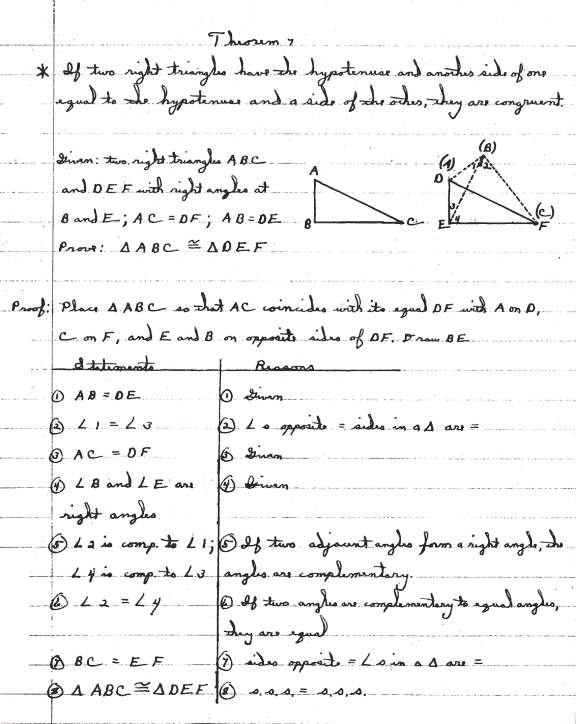 Theorem 7
* If two right triangles have the hypotenuse and another side of one
equal to the hypotenuse and a side of the other, they are congruent.
Given: two right triangles ABC
and DEF with right angles at
B and E; AC = DF; AB = DE
Prove: △ ABC ≅ △ DEF
A
B
C
(B)
(A)
D
1
2
3
4
E
(C)
F
Proof: Place △ ABC so that AC coincides with its equal DF with A on D,
C on F, and E and B on opposite sides of DF. Draw BE
Statements Reasons
① AB = DE ① Given
② ∠1 = ∠3 ② ∠s opposite = sides in a △ are =
③ AC = DF ③ Given
④ ∠B and ∠E are ④ Given
right angles
⑤ ∠2 is comp. to ∠1; ⑤ If two adjacent angles form a right angle, the
∠4 is comp. to ∠3 angles are complementary.
⑥ ∠2 = ∠4 ⑥ If two angles are complementary to equal angles,
they are equal
⑦ BC = EF ⑦ sides opposite = ∠s in a △ are =
⑧ △ ABC ≅ △DEF ⑧ s.s.s. = s.s.s.